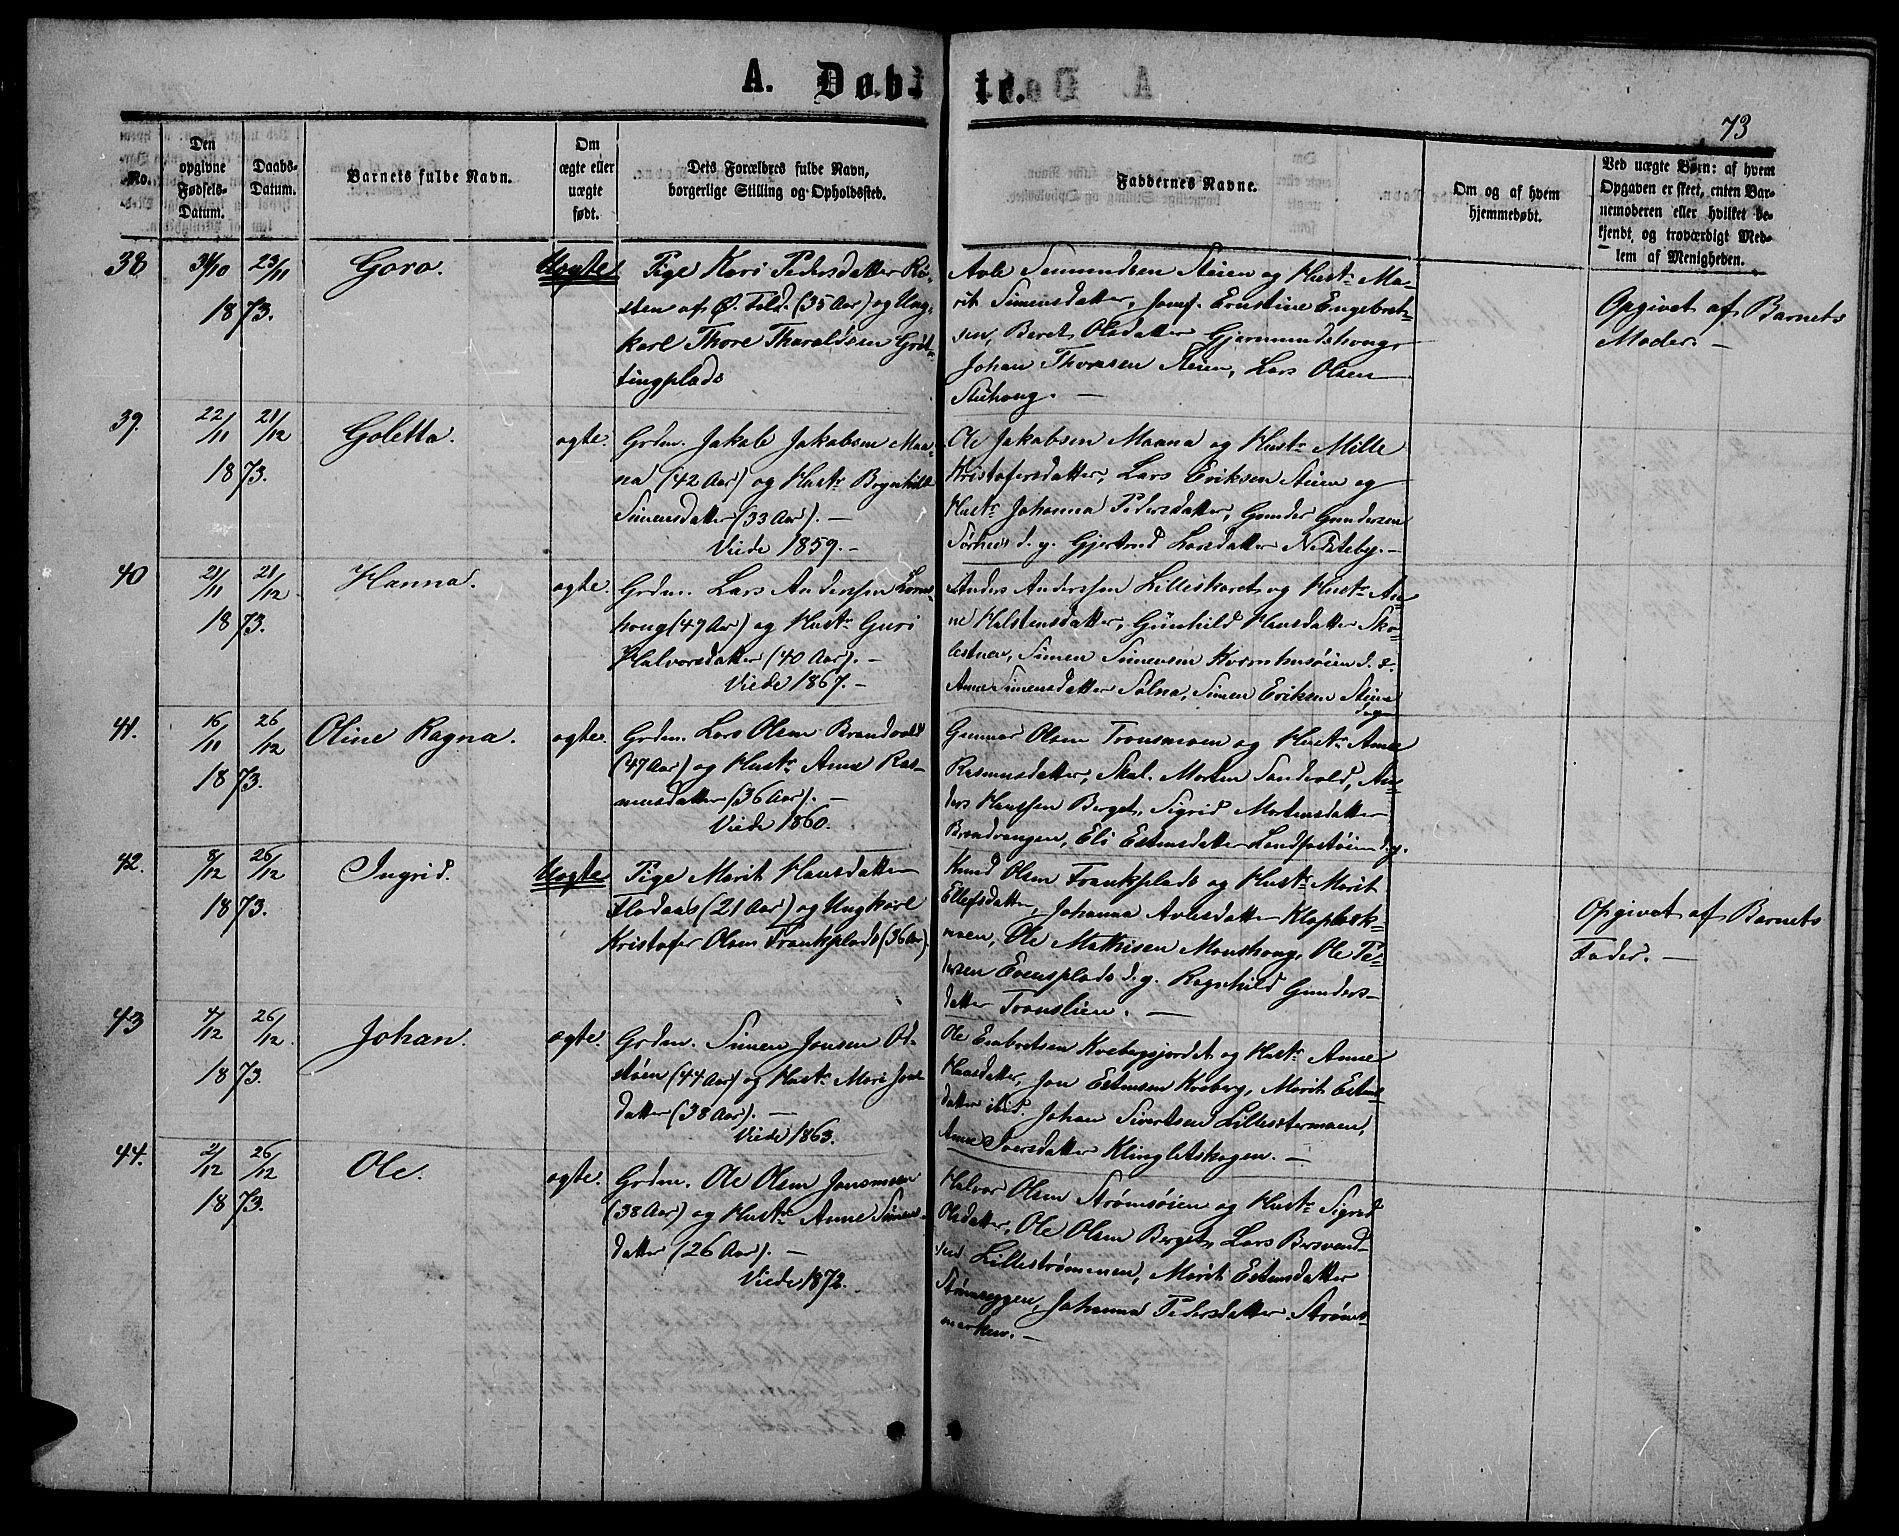 A. Døbte.
73
No.
Den opgivne Fødsels-Datum.
Daabs-Datum.
Barnets fulde Navn.
Om ægte eller uægte født.
Dets Forældres fulde Navn, borgerlige Stilling og Opholdssted.
Faddernes Navne.
Om og af hvem hjemmedøbt.
Ved uægte Børn: af hvem Opgaven er skeet, enten Barnemoderen eller hvilket bekjendt og troværdigt Medlem af Menigheden.
38
31/10 23/11
1873.
Goro.
Uægte
Pige Kari Pedersdatter Rø-
sten af Ø. Feld. (35 Aar) og Ung-
karl Thore Tharaldsen Gröt-
tingplads
Avle Semundsen Steien og Hustr Ma-
rit Simensdatter, Jomf. Ernstine Engebret-
sen, Beret Olsdatter Gjermundshaug
Johan Thoresen Steien, Lars Olsen
Stuhaug. —
Opgivet af Barnets
Moder. —
39.
22/11 21/12
1873.
Goletta.
ægte.
Grdm. Jakob Jakobsen Maa-
na (42 Aar) og Hustr Brynhild
Simensdatter (33 Aar). —
Viede 1859. —
Ole Jakobsen Maana og Hustr Mille
Kristofersdatter, Lars Eriksen Steien og
Hustr Johanna Pedersdatter, Gunder Gundersen
Sørhus d. y. Gjertrud Larsdatter Nesteby. —
40
21/11 21/12
1873.
Hanna.
ægte.
Grdm. Lars Anderssen
houg (47 Aar) og Hustr Guri
Halvorsdatter (40 Aar). —
Viede 1867. —
Anders Anderssen Lilleskaret og Hustr An-
ne Halstensdatter, Gunhild Hansdatter Sko-
lestuen, Simen Simensen Kornhusøien d. æ.
Anne Simensdatter Solna, Simen Eriksen Steien
d. y.
41.
16/11 26/12
1873.
Oline Ragna.
ægte.
Grdm. Lars Olsen Brandvold
(47 Aar) og Hustr Anne Ras-
musdatter (36 Aar). —
Viede 1860.
Gunnar Olsen Tronsmoen og Hustr Anne
Rasmusdatter, Skol. Morten Sandvold, An-
ders Hanssen Berget, Sigrid Mortensdatter
Brandvangen, Eli Estensdatter Landfastøien d. y.
42.
8/12 26/12
1873.
Ingrid.
Uægte
Pige Marit Hansdatter
Fladaas (21 Aar) og Ungkarl
Kristofer Olsen Frankplads (36 Aar).
Knud Olsen Frankplads og Hustr Marit
Ellefsdatter, Johanna Avlesdatter Klapbæk-
moen, Ole Mathisen Monshoug, Ole Pe-
dersen Evensplads d. y. Ragnhild Gunders-
datter Tronslien. —
Opgivet af Barnets
Fader. —
43
4/12 26/12
1873.
Johan.
ægte.
Grdm. Simen Jonsen Od-
støen (44 Aar) og Hustr Mari Jons-
datter (38 Aar). —
Viede 1863.
Ole Embretsen Kvebergsjordet og Hustr Anne
Hansdatter, Jon Estensen Kveberg, Marit Estens-
datter ibid. Johan Sivertsen Lillestermoen,
Anne Iversdatter Klingletskogen. —
44.
2/12 26/12
1873.
Ole.
ægte.
Grdm. Ole Olsen Jonsmoen
(38 Aar) og Hustr Anne Simens-
datter (26 Aar). —
Viede 1872.
Halvor Olsen Strømsøien og Hustr Sigrid
Olsdatter, Ole Olsen Berget, Lars Bersvend-
sen Lillestrømenen, Marit Estensdatter
Strømseggen, Johanna Pedersdatter Strøms-
marken. —